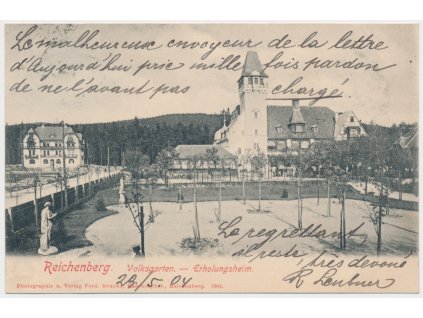 Le malheureux envoyeur de la lettre
d'Aujourd'hui prie mille fois pardon
de ne l'avant pas chargé
La regrettant,
il reste très dévoué
R Leubner
Reichenberg. Volksgarten. — Erholungsheim.
29/5 04
Photographie u. Verlag Ferd. Reichenberg. 1904.